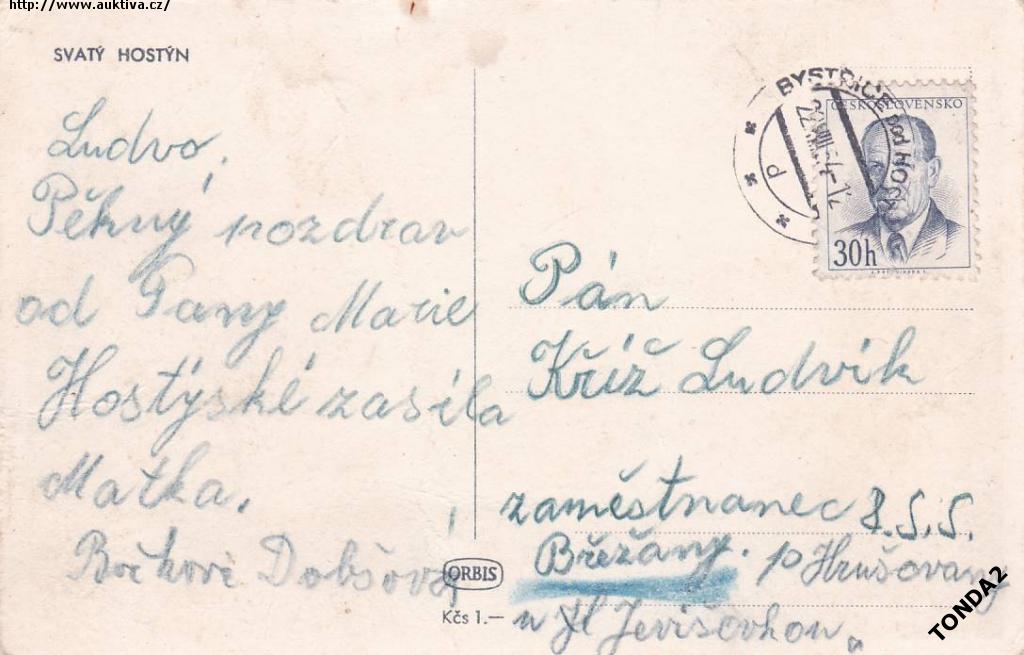 http://www.auktiva.cz/
SVATÝ HOSTÝN
Ludvo,
Pěkný pozdrav
od Pany Marie
Hostýské zasíla
Matka.
Dobšova
ORBIS
Kčs 1.—
BYSTŘICE pod HOST
ČESKOSLOVENSKO
30h
Pán
Kříž Ludvík
zaměstnanec
Břežany. p Hrušovany
n Jevišovkou
TONDA2